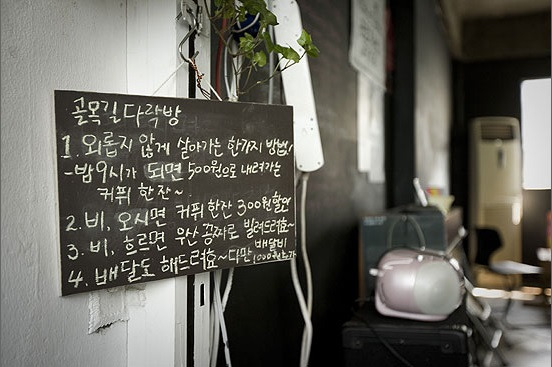 골목길다락방
1. 외롭지 않게 살아가는 한가지 방법!
-밤9시가 되면 500원으로 내려가는
커퓌 한잔~
2. 비, 오시면 커퓌 한잔 300원할인
3. 비, 흐르면 우산 공짜로 빌려드려요~
4. 배달도 해드려요~ 다만 배달비
1000원